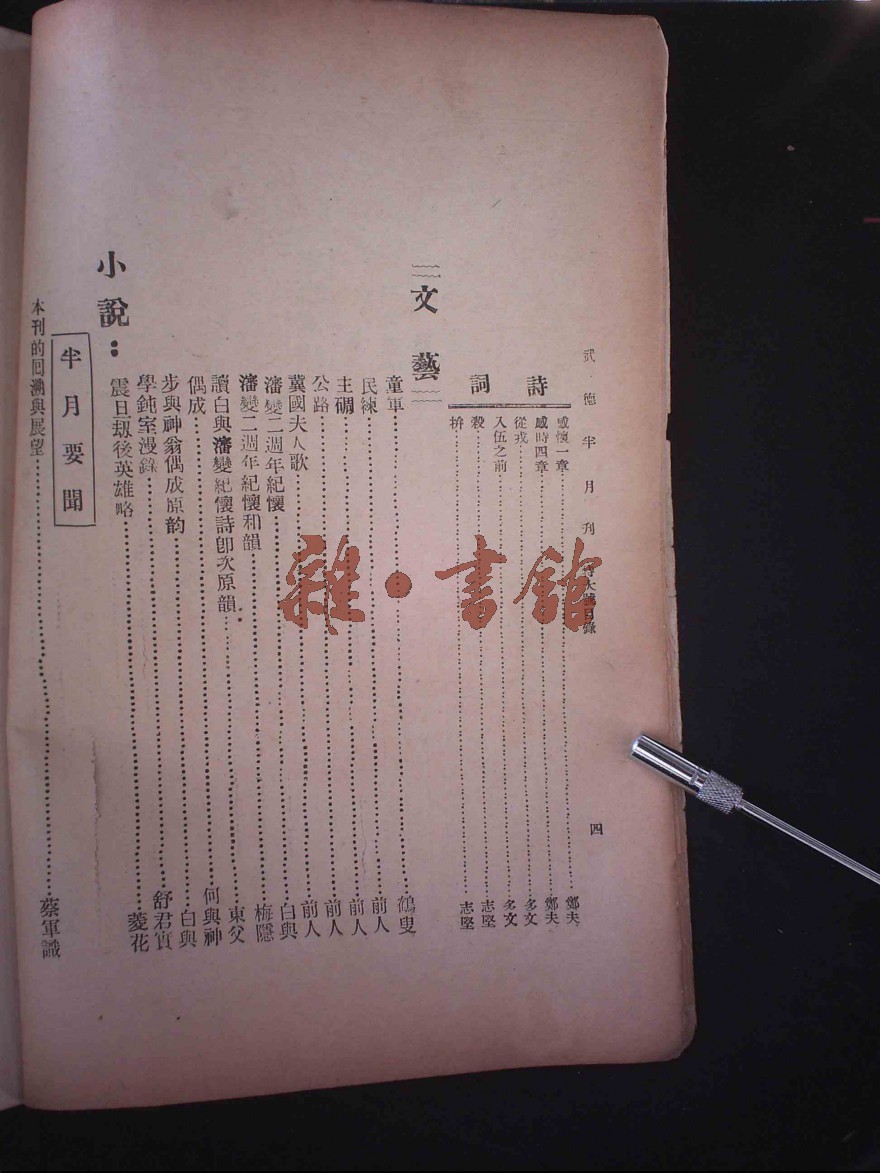 武德半月刊 特大號目錄 四
詩詞
感懷一章……鄭夫
感時四章……鄭夫
從戎……多文
入伍之前……多文
殺……志堅
拚……志堅
文藝
童軍……鶴叟
民練……前人
主碉……前人
公路……前人
冀國夫人歌……前人
瀋變二週年紀懷……白與
瀋變二週年紀懷和韻……梅隱
讀白與瀋變紀懷詩卽次原韻……東父
偶成……何與神
步與神翁偶成原韵……白與
學鈍室漫錄……舒君實
小說:
震旦刼後英雄略……菱花
半月要聞
本刊的囘溯與展望……蔡軍識
雜·書館